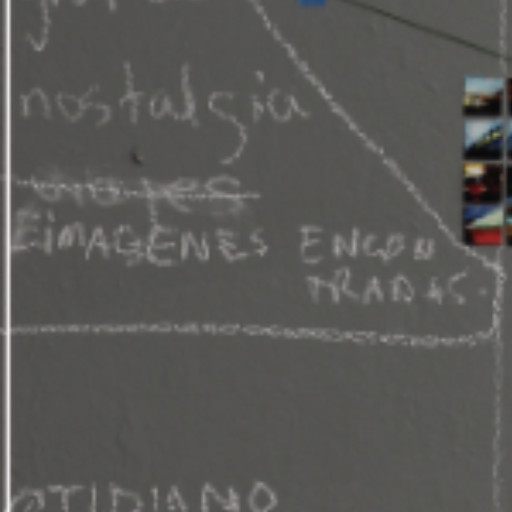 nostalgia
EIMAGENES ENCON
TRADAS.
OTIDIANO